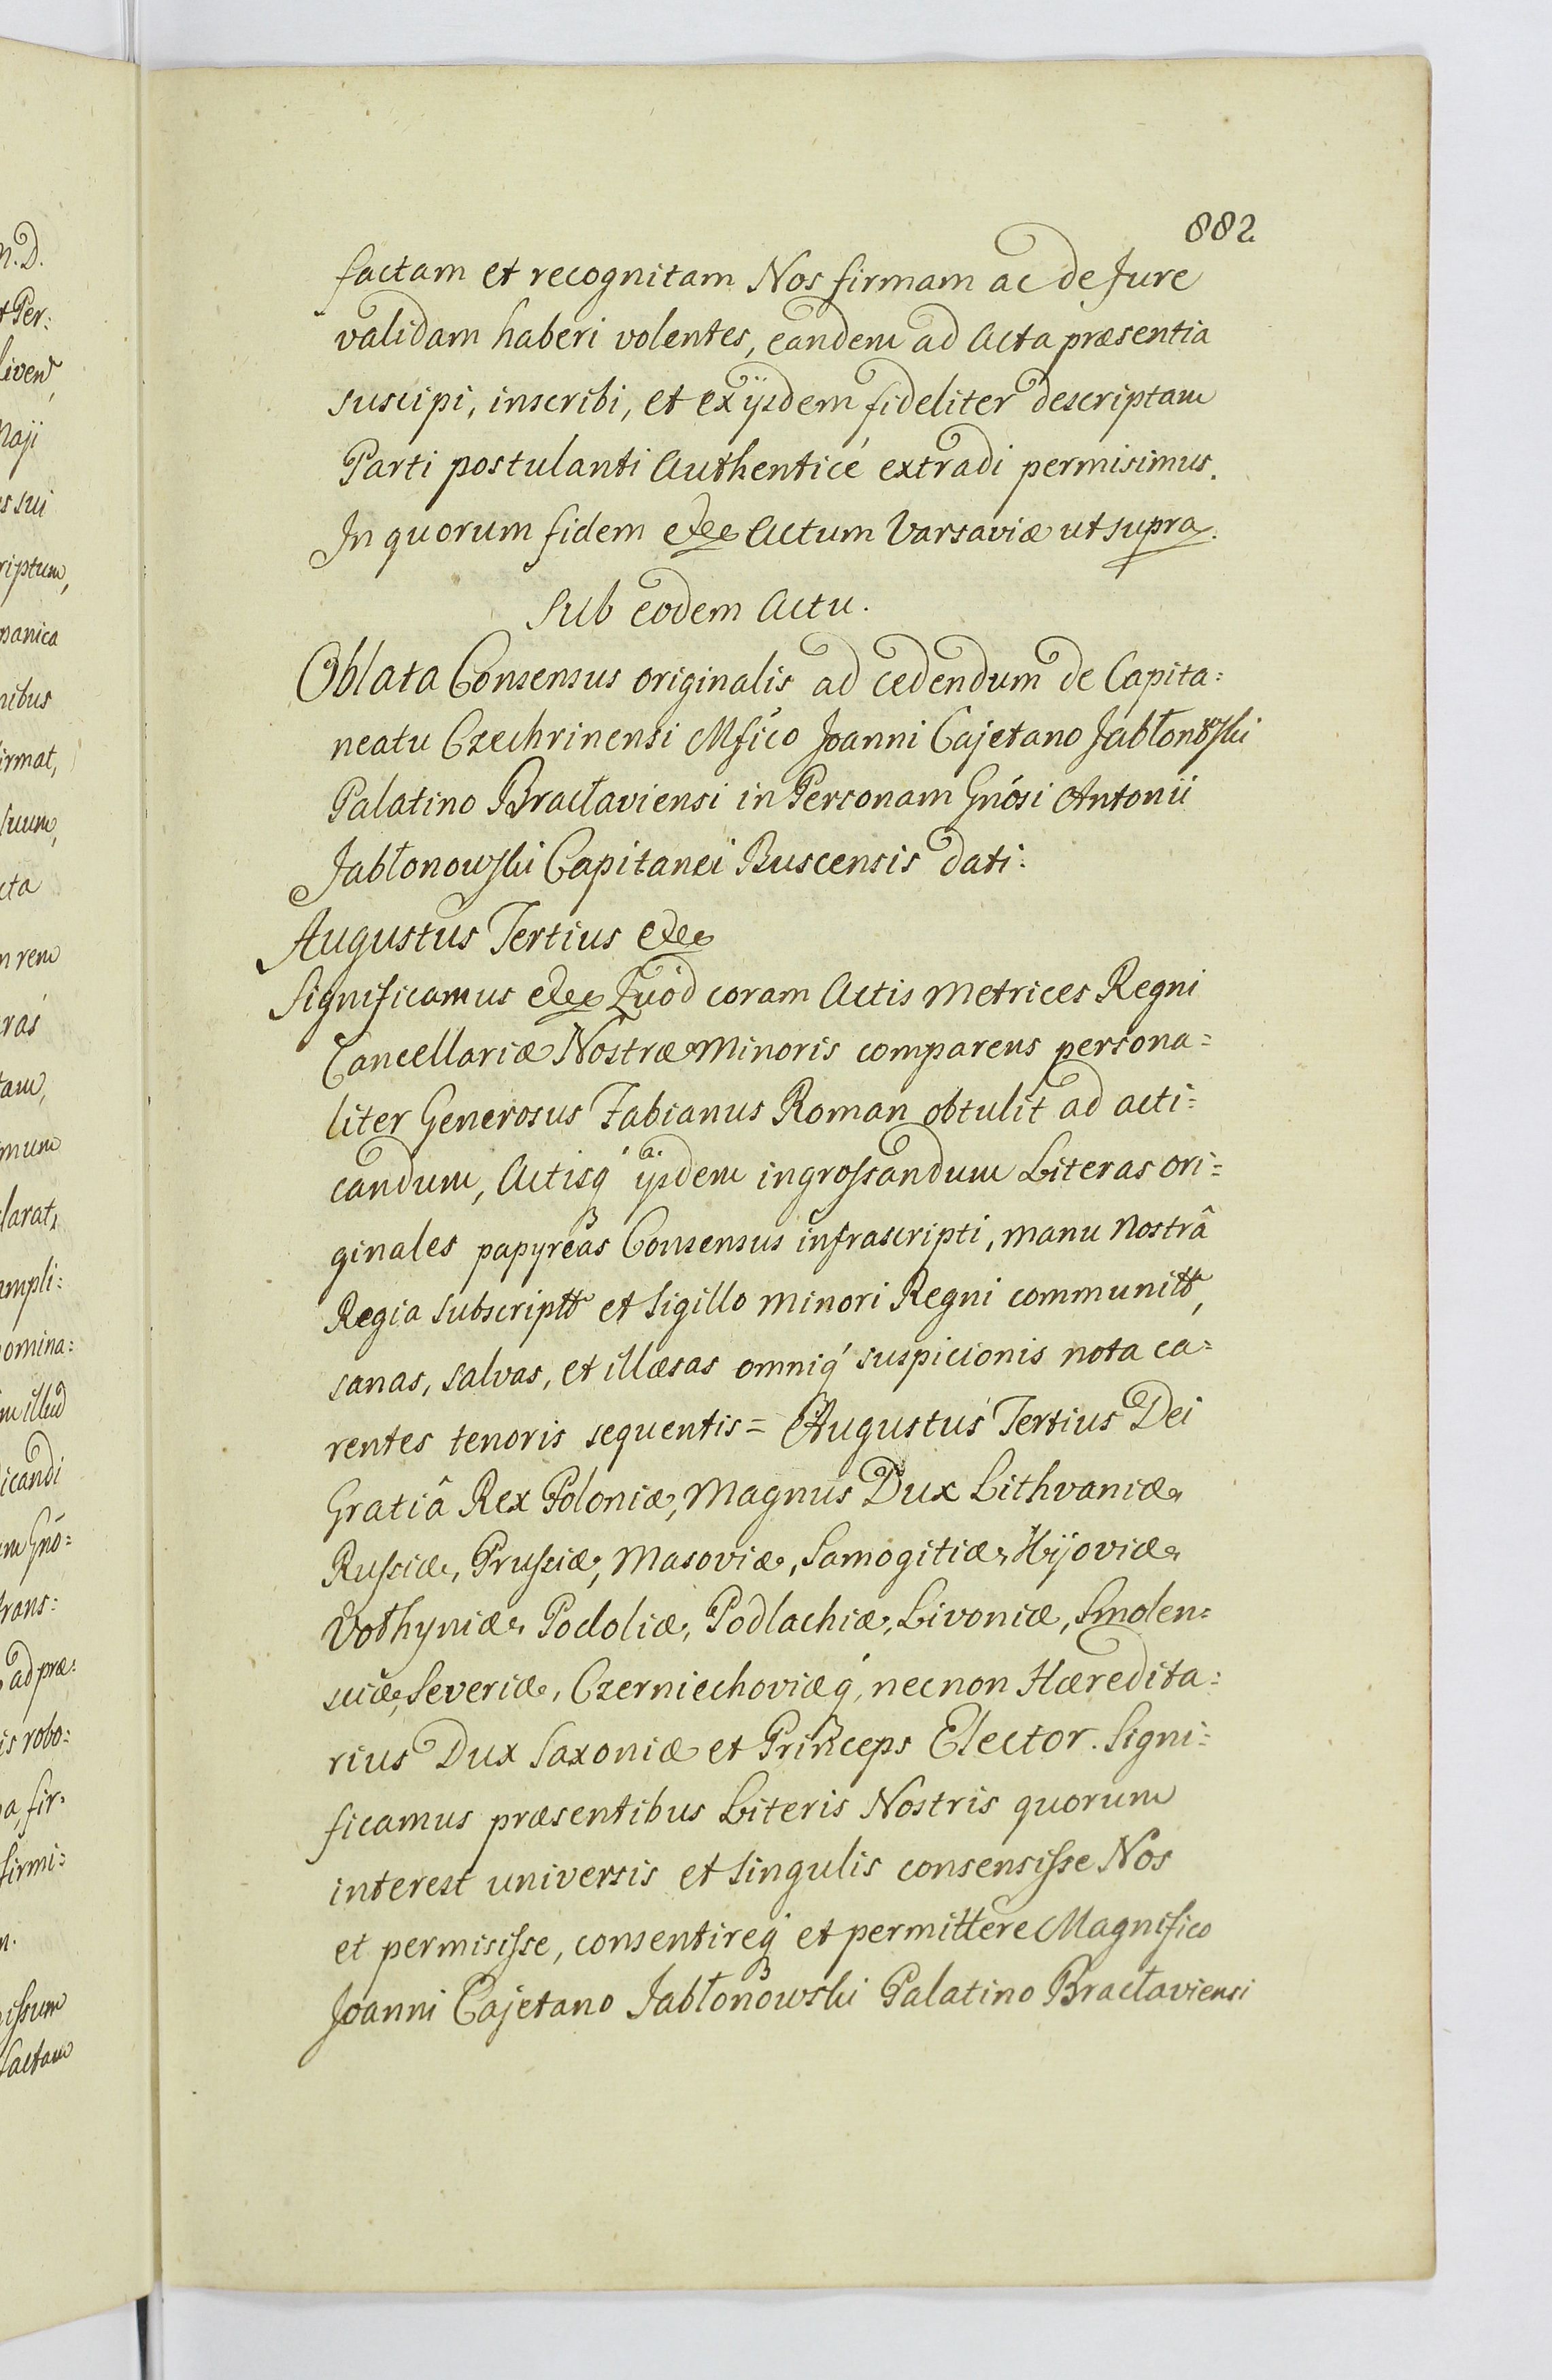 882
factam et recognitam Nos firmam ac de Jure
validam haberi volentes, eandem ad Acta præsentia
suscipi, inscribi, et ex ijsdem fideliter descriptam
Parti postulanti Authenticé extradi permisimus.
In quorum fidem etc Actum Varsaviæ ut supra.
Sub eodem Actu.
Oblata Consensus originalis ad cedendum de Capita=
neatu Czechrinensi Mfico Joanni Cajetano Jabłonowski
Palatino Bracłaviensi in Personam Gnosi Antonii
Jabłonowski Capitanei Buscensis dati.
Augustus Tertius etc
Significamus etc Quod coram Actis Metrices Regni
Cancellariæ Nostræ Minoris comparens persona=
liter Generosus Fabianus Roman obtulit ad acti=
candum, Actisq́ ijsdem ingrossandum Literas ori=
ginales papyreas Consensus infrascripti, manu Nostrâ
Regia subscriptt et Sigillo minori Regni communitt,
sanas, salvas, et illæsas omniq́ suspicionis nota ca=
rentes tenoris sequentis = Augustus Tertius Dei
Gratiâ Rex Poloniæ, Magnus Dux Lithvaniæ,
Russiæ, Prussiæ, Masoviæ, Samogitiæ, Kijoviæ,
Vołhyniæ, Podoliæ, Podlachiæ, Livoniæ, Smolen=
sciæ, Severiæ, Czerniechoviæq́, necnon Hæredita=
rius Dux Saxoniæ et Princeps Elector. Signi=
ficamus præsentibus Literis Nostris quorum
interest universis et singulis consensisse Nos
et permisisse, consentireq́ et permittere Magnifico
Joanni Cajetano Jabłonowski Palatino Bracłaviensi